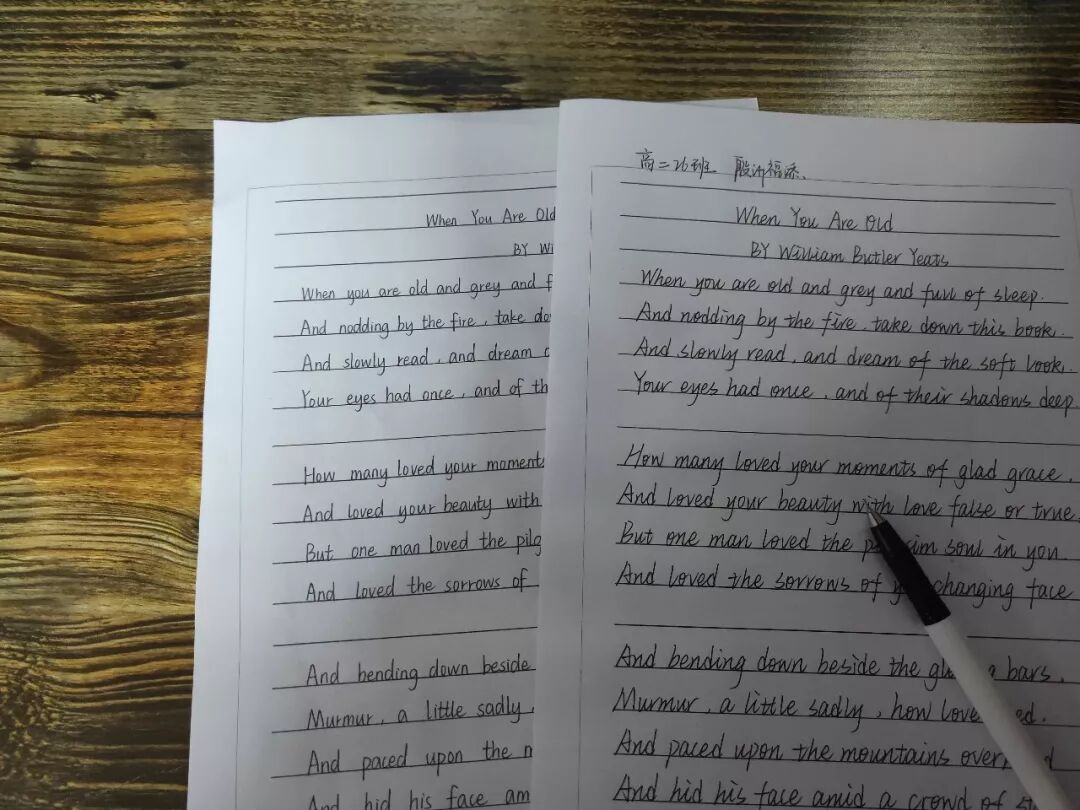 When You Are Old
BY Wi
When you are old and grey and f
And nodding by the fire, take do
And slowly read, and dream o
Your eyes had once, and of th
How many loved your moments
And loved your beauty with
But one man loved the pilg
And loved the sorrows of
And bending down beside
Murmur, a little sadly,
And paced upon the m
And hid his face am
高二26班
When You Are Old
BY William Butler Yeats
When you are old and grey and full of sleep.
And nodding by the fire, take down this book.
And slowly read, and dream of the soft look.
Your eyes had once, and of their shadows deep
How many loved your moments of glad grace,
And loved your beauty with love false or true.
But one man loved the soul in you
And loved the sorrows of changing face
And bending down beside the bars,
Murmur, a little sadly, how
And paced upon the mountains
And hid his face amid a crowd of st